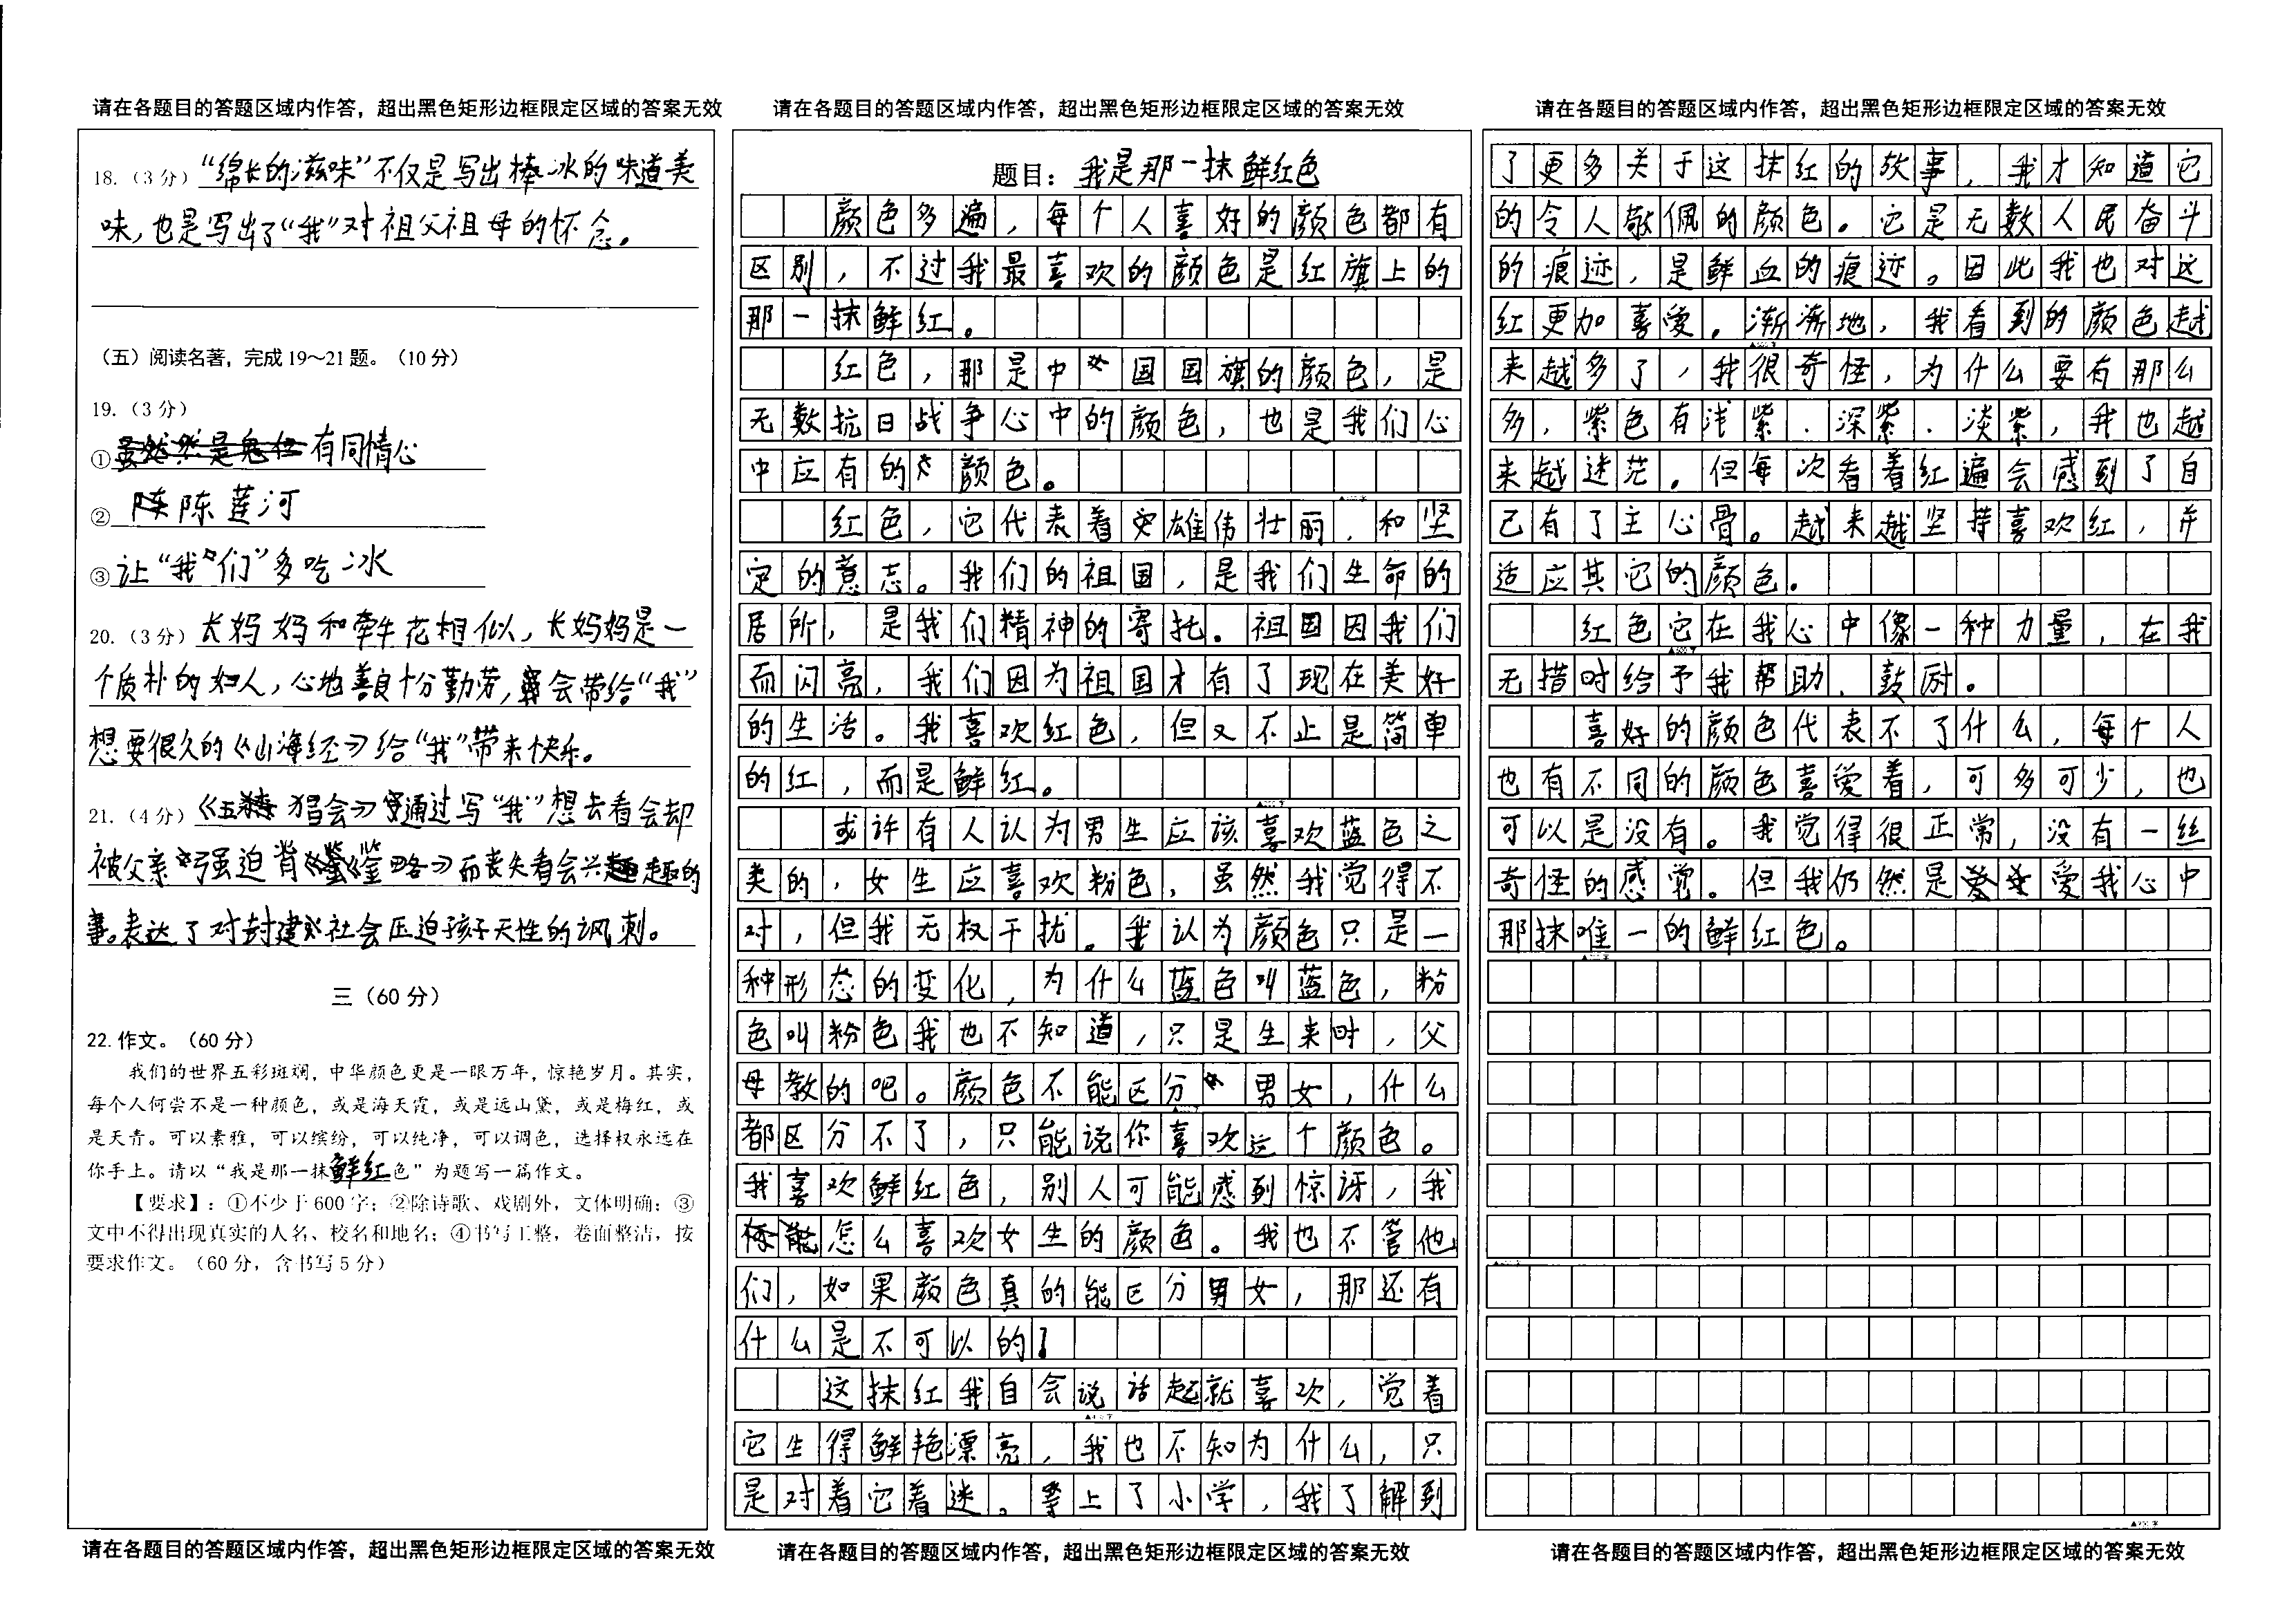 请在各题目的答题区域内作答，超出黑色矩形边框限定区域的答案无效
18.（3分）“绵长的滋味”不仅是写出棒冰的味道美
味,也是写出了“我”对祖父祖母的怀念。
（五）阅读名著，完成19～21题。（10分）
19.（3分）
①有同情心
②陈莲河
③让“我们”多吃冰
20.（3分）长妈妈和牵牛花相似，长妈妈是一
个质朴的妇人，心地善良十分勤劳，会带给“我”
想要很久的《山海经》给“我”带来快乐。
21.（4分）《五猖会》通过写“我”想去看会却
被父亲强迫背《鉴略》而丧失看会兴趣的
事。表达了对封建社会压迫孩子天性的讽刺。
三（60分）
22.作文。（60分）
我们的世界五彩斑斓，中华颜色更是一眼万年，惊艳岁月。其实，
每个人何尝不是一种颜色，或是海天霞，或是远山黛，或是梅红，或
是天青。可以素雅，可以缤纷，可以纯净，可以调色，选择权永远在
你手上。请以“我是那一抹鲜红色”为题写一篇作文。
【要求】：①不少于600字；②除诗歌、戏剧外，文体明确；③
文中不得出现真实的人名、校名和地名；④书写工整，卷面整洁，按
要求作文。（60分，含书写5分）
请在各题目的答题区域内作答，超出黑色矩形边框限定区域的答案无效
请在各题目的答题区域内作答，超出黑色矩形边框限定区域的答案无效
题目：我是那一抹鲜红色
颜色多遍，每个人喜好的颜色都有
区别，不过我最喜欢的颜色是红旗上的
那一抹鲜红。
红色，那是中国国旗的颜色，是
无数抗日战争心中的颜色，也是我们心
中应有的颜色。
红色，它代表着雄伟壮丽，和坚
定的意志。我们的祖国，是我们生命的
居所，是我们精神的寄托。祖国因我们
而闪亮，我们因为祖国才有了现在美好
的生活。我喜欢红色，但又不止是简单
的红，而是鲜红。
或许有人认为男生应该喜欢蓝色之
类的，女生应喜欢粉色，虽然我觉得不
对，但我无权干扰。我认为颜色只是一
种形态的变化，为什么蓝色叫蓝色，粉
色叫粉色我也不知道，只是生来时，父
母教的吧。颜色不能区分男女，什么
都区分不了，只能说你喜欢这个颜色。
我喜欢鲜红色，别人可能感到惊讶，我
怎么喜欢女生的颜色。我也不管他
们，如果颜色真的能区分男女，那还有
什么是不可以的！
这抹红我自会说话起就喜欢，觉着
它生得鲜艳漂亮，我也不知为什么，只
是对着它着迷。等上了小学，我了解到
请在各题目的答题区域内作答，超出黑色矩形边框限定区域的答案无效
请在各题目的答题区域内作答，超出黑色矩形边框限定区域的答案无效
了更多关于这抹红的故事，我才知道它
的令人敬佩的颜色。它是无数人民奋斗
的痕迹，是鲜血的痕迹。因此我也对这
红更加喜爱。渐渐地，我看到的颜色越
来越多了，我很奇怪，为什么要有那么
多，紫色有浅紫、深紫、淡紫，我也越
来越迷茫。但每次看着红遍会感到了自
己有了主心骨。越来越坚持喜欢红，并
适应其它的颜色。
红色它在我心中像一种力量，在我
无措时给予我帮助、鼓励。
喜好的颜色代表不了什么，每个人
也有不同的颜色喜爱着，可多可少，也
可以是没有。我觉得很正常，没有一丝
奇怪的感觉。但我仍然是爱我心中
那抹唯一的鲜红色。
请在各题目的答题区域内作答，超出黑色矩形边框限定区域的答案无效